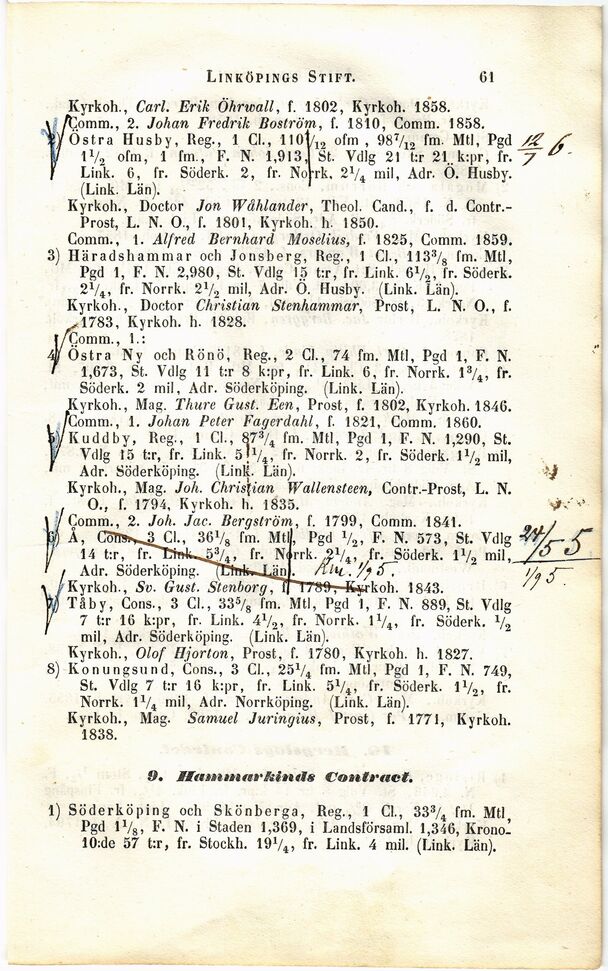 LINKÖPINGS STIFT. 61
Kyrkoh., Carl. Erik Öhrwall, f. 1802, Kyrkoh. 1858.
Comm., 2. Johan Fredrik Boström, f. 1810, Comm. 1858.
2) Östra Husby, Reg., 1 Cl., 110 /12 ofm , 98 7/12 fm. Mtl, Pgd
1 1/2 ofm, 1 fm., F. N. 1,913, St. Vdlg 21 t:r 21 k:pr, fr.
Link. 6, fr. Söderk. 2, fr. Norrk. 2 1/4 mil, Adr. Ö. Husby.
(Link. Län).
12/7 6.
Kyrkoh., Doctor Jon Wåhlander, Theol. Cand., f. d. Contr.-
Prost, L. N. O., f. 1801, Kyrkoh. h. 1850.
Comm., 1. Alfred Bernhard Moselius, f. 1825, Comm. 1859.
3) Häradshammar och Jonsberg, Reg., 1 Cl., 113 3/8 fm. Mtl,
Pgd 1, F. N. 2,980, St. Vdlg 15 t:r, fr. Link. 6 1/2, fr. Söderk.
2 1/4, fr. Norrk. 2 1/2 mil, Adr. Ö. Husby. (Link. Län).
Kyrkoh., Doctor Christian Stenhammar, Prost, L. N. O., f.
1783, Kyrkoh. h. 1828.
Comm., 1.:
4) Östra Ny och Rönö, Reg., 2 Cl., 74 fm. Mtl, Pgd 1, F. N.
1,673, St. Vdlg 11 t:r 8 k:pr, fr. Link. 6, fr. Norrk. 1 3/4, fr.
Söderk. 2 mil, Adr. Söderköping. (Link. Län).
Kyrkoh., Mag. Thure Gust. Een, Prost, f. 1802, Kyrkoh. 1846.
Comm., 1. Johan Peter Fagerdahl, f. 1821, Comm. 1860.
5) Kuddby, Reg., 1 Cl., 87 3/4 fm. Mtl, Pgd 1, F. N. 1,290, St.
Vdlg 15 t:r, fr. Link. 5 1/4, fr. Norrk. 2, fr. Söderk. 1 1/2 mil,
Adr. Söderköping. (Link. Län).
Kyrkoh., Mag. Joh. Christian Wallensteen, Contr.-Prost, L. N.
O., f. 1794, Kyrkoh. h. 1835.
Comm., 2. Joh. Jac. Bergström, f. 1799, Comm. 1841.
6) Å, Cons. 3 Cl., 36 1/8 fm. Mtl, Pgd 1/2, F. N. 573, St. Vdlg
14 t:r, fr. Link. 5 3/4, fr. Norrk. 2 1/4, fr. Söderk. 1 1/2 mil,
Adr. Söderköping. (Link. Län). 1/95.
24/5 5
1/95.
Kyrkoh., Sv. Gust. Stenborg, f. 1789, Kyrkoh. 1843.
7) Tåby, Cons., 3 Cl., 33 5/8 fm. Mtl, Pgd 1, F. N. 889, St. Vdlg
7 t:r 16 k:pr, fr. Link. 4 1/2, fr. Norrk. 1 1/4, fr. Söderk. 1/2
mil, Adr. Söderköping. (Link. Län).
Kyrkoh., Olof Hjorton, Prost, f. 1780, Kyrkoh. h. 1827.
8) Konungsund, Cons., 3 Cl., 25 1/4 fm. Mtl, Pgd 1, F. N. 749,
St. Vdlg 7 t:r 16 k:pr, fr. Link. 5 1/4, fr. Söderk. 1 1/2, fr.
Norrk. 1 1/4 mil, Adr. Norrköping. (Link. Län).
Kyrkoh., Mag. Samuel Juringius, Prost, f. 1771, Kyrkoh.
1838.
9. Hammarkinds Contract.
1) Söderköping och Skönberga, Reg., 1 Cl., 33 3/4 fm. Mtl,
Pgd 1 1/8, F. N. i Staden 1,369, i Landsförsaml. 1,346, Krono-
10:de 57 t:r, fr. Stockh. 19 1/4, fr. Link. 4 mil. (Link. Län).